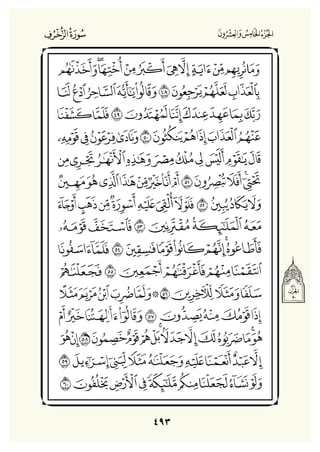 سُورَةُ الزُّخْرُفِ
الجُزْءُ الخَامِسُ وَالعِشْرُونَ
وَمَا نُرِيهِم مِّنْ ءَايَةٍ إِلَّا هِىَ أَكْبَرُ مِنْ أُخْتِهَا ۖ وَأَخَذْنَٰهُم
بِالْعَذَابِ لَعَلَّهُمْ يَرْجِعُونَ ٤٨ وَقَالُوا۟ يَٰٓأَيُّهَ السَّاحِرُ ادْعُ لَنَا
رَبَّكَ بِمَا عَهِدَ عِندَكَ إِنَّنَا لَمُهْتَدُونَ ٤٩ فَلَمَّا كَشَفْنَا
عَنْهُمُ الْعَذَابَ إِذَا هُمْ يَنكُثُونَ ٥٠ وَنَادَىٰ فِرْعَوْنُ فِى قَوْمِهِۦ
قَالَ يَٰقَوْمِ أَلَيْسَ لِى مُلْكُ مِصْرَ وَهَٰذِهِ الْأَنْهَٰرُ تَجْرِى مِن
تَحْتِىٓ ۖ أَفَلَا تُبْصِرُونَ ٥١ أَمْ أَنَا۠ خَيْرٌ مِّنْ هَٰذَا الَّذِى هُوَ مَهِينٌ
وَلَا يَكَادُ يُبِينُ ٥٢ فَلَوْلَآ أُلْقِىَ عَلَيْهِ أَسْوِرَةٌ مِّن ذَهَبٍ أَوْ جَآءَ
مَعَهُ الْمَلَٰٓئِكَةُ مُقْتَرِنِينَ ٥٣ فَاسْتَخَفَّ قَوْمَهُۥ
فَأَطَاعُوهُ ۚ إِنَّهُمْ كَانُوا۟ قَوْمًا فَٰسِقِينَ ٥٤ فَلَمَّآ ءَاسَفُونَا
انتَقَمْنَا مِنْهُمْ فَأَغْرَقْنَٰهُمْ أَجْمَعِينَ ٥٥ فَجَعَلْنَٰهُمْ
سَلَفًا وَمَثَلًا لِّلْءَاخِرِينَ ٥٦ ۞ وَلَمَّا ضُرِبَ ابْنُ مَرْيَمَ مَثَلًا
إِذَا قَوْمُكَ مِنْهُ يَصِدُّونَ ٥٧ وَقَالُوٓا۟ ءَأَٰلِهَتُنَا خَيْرٌ أَمْ
هُوَ ۚ مَا ضَرَبُوهُ لَكَ إِلَّا جَدَلًۢا ۚ بَلْ هُمْ قَوْمٌ خَصِمُونَ ٥٨ إِنْ هُوَ
إِلَّا عَبْدٌ أَنْعَمْنَا عَلَيْهِ وَجَعَلْنَٰهُ مَثَلًا لِّبَنِىٓ إِسْرَٰٓءِيلَ ٥٩
وَلَوْ نَشَآءُ لَجَعَلْنَا مِنكُم مَّلَٰٓئِكَةً فِى الْأَرْضِ يَخْلُفُونَ ٦٠
٤٩٣